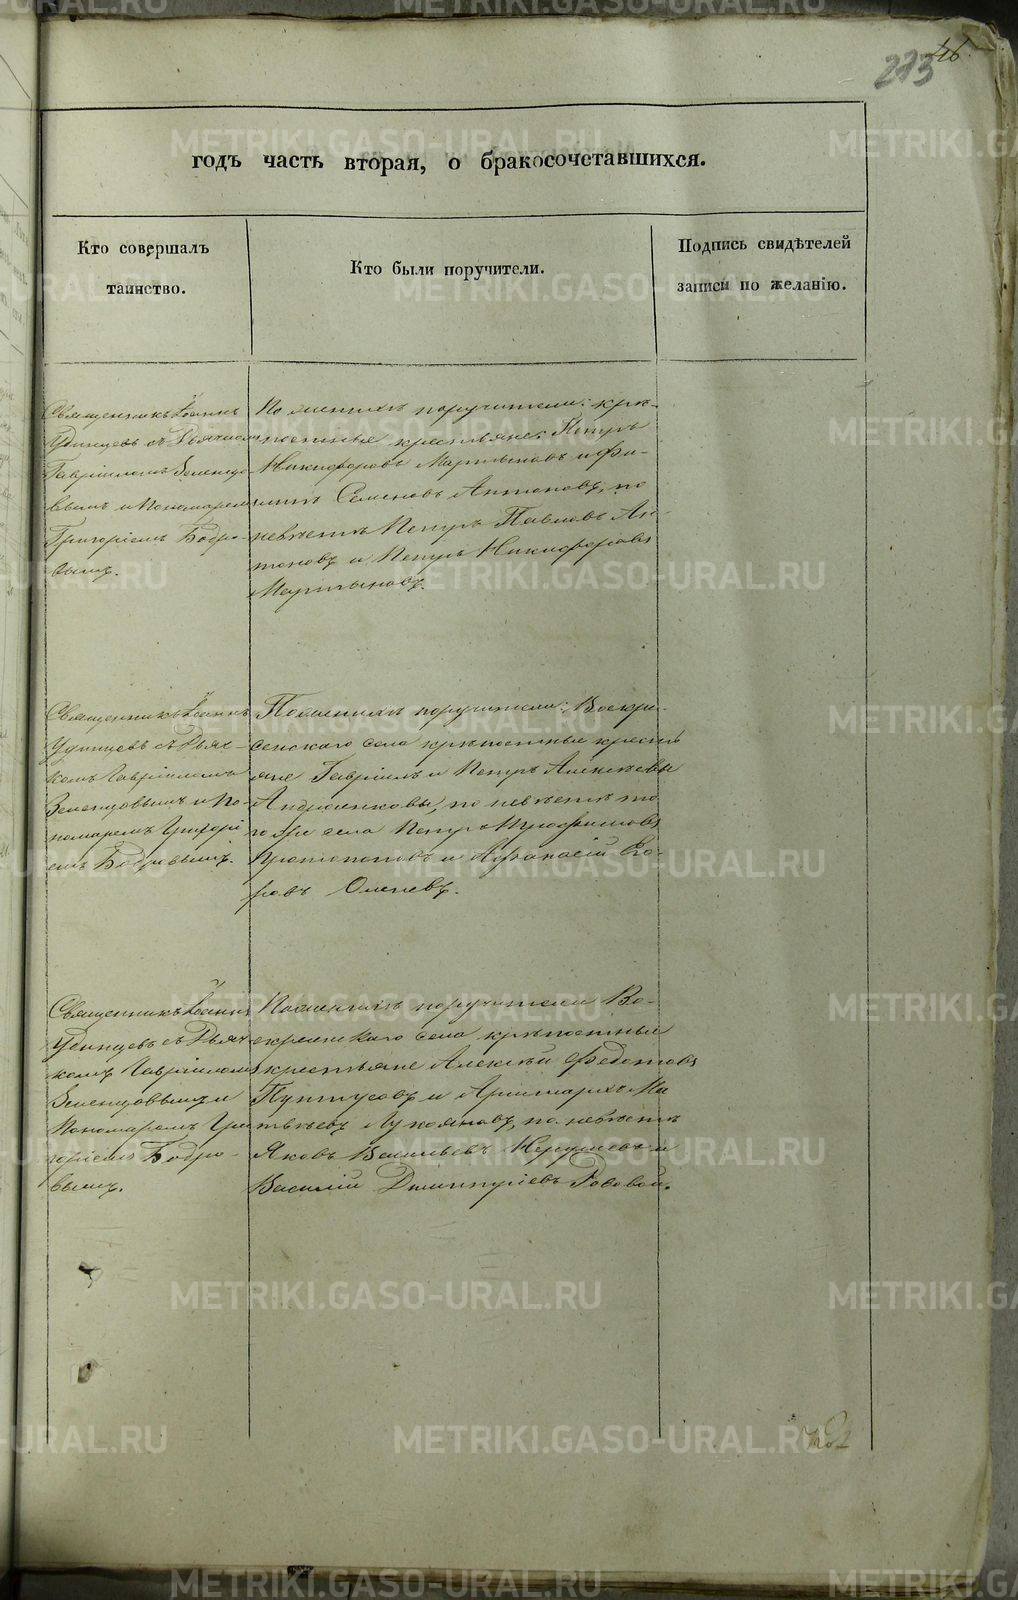 273
46.
годъ часть вторая, о бракосочетавшихся.
Кто совершалъ
таинство.
Кто были поручители.
Подпись свидѣтелей
записи по желанію.
Священникъ Іоаннъ
Удинцевъ съ Дьячкомъ
Гавріиломъ Зеленцо-
вымъ и Пономаремъ
Григоріемъ Бобро-
вымъ.
По женихѣ поручители: крѣ-
постные крестьяне: Петръ
Никифоровъ Мартыновъ и Фи-
липъ Семеновъ Антоновъ, по
невѣстѣ Петръ Павловъ Ан-
тоновъ и Петръ Никифоровъ
Мартыновъ.
Священникъ Іоаннъ
Удинцевъ съ Дьяч-
комъ Гавріиломъ
Зеленцовымъ и По-
номаремъ Григорі-
емъ Бобровымъ.
По женихѣ поручители: Воскре-
сенскаго села крѣпостные кресть
яне Гавріилъ и Петръ Алексѣевы
по невѣстѣ то
го же села Петръ Трофимовъ
Протопоповъ и Афанасій Его-
ровъ
Священникъ Іоаннъ
Удинцевъ съ Дьяч
комъ Гавріиломъ
Зеленцовымъ и
Пономаремъ Гри
горіемъ Бобро-
вымъ.
По женихѣ поручители Во-
скресенскаго села крѣпостные
крестьяне Алексѣй Федотовъ
и Аристархъ Ма
твѣевъ Лукояновъ, по невѣстѣ
Яковъ Васильевъ и
Василій Дмитріевъ
METRIKI.GASO-URAL.RU